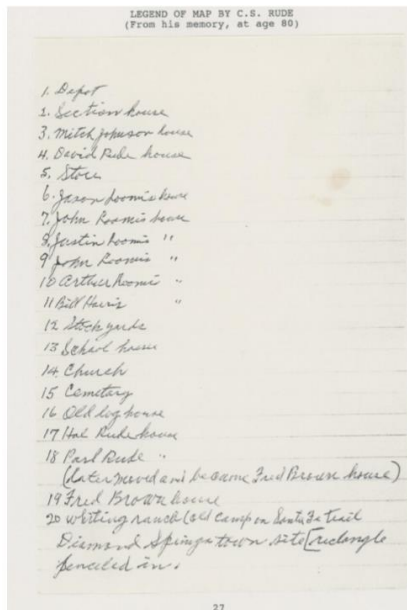 LEGEND OF MAP BY C.S. RUDE
(From his memory, at age 80)
1. Depot
2. Section house
3. Mitch Johnson house
4. David Rude house
5. Store
6. Jason Loomis house
7. John Loomis house
8. Justin Loomis "
9 John Loomis "
10 Arthur Loomis "
11 Bill Harris "
12 Stock yards
13 School house
14 Church
15 Cemetary
16 Old log house
17 Hal Rude house
18 Parl Rude "
(later moved and became Fred Brown house)
19 Fred Brown house
20 Whiting ranch (old camp on Santa Fe trail
Diamond Springs town site [rectangle
penciled in.
27